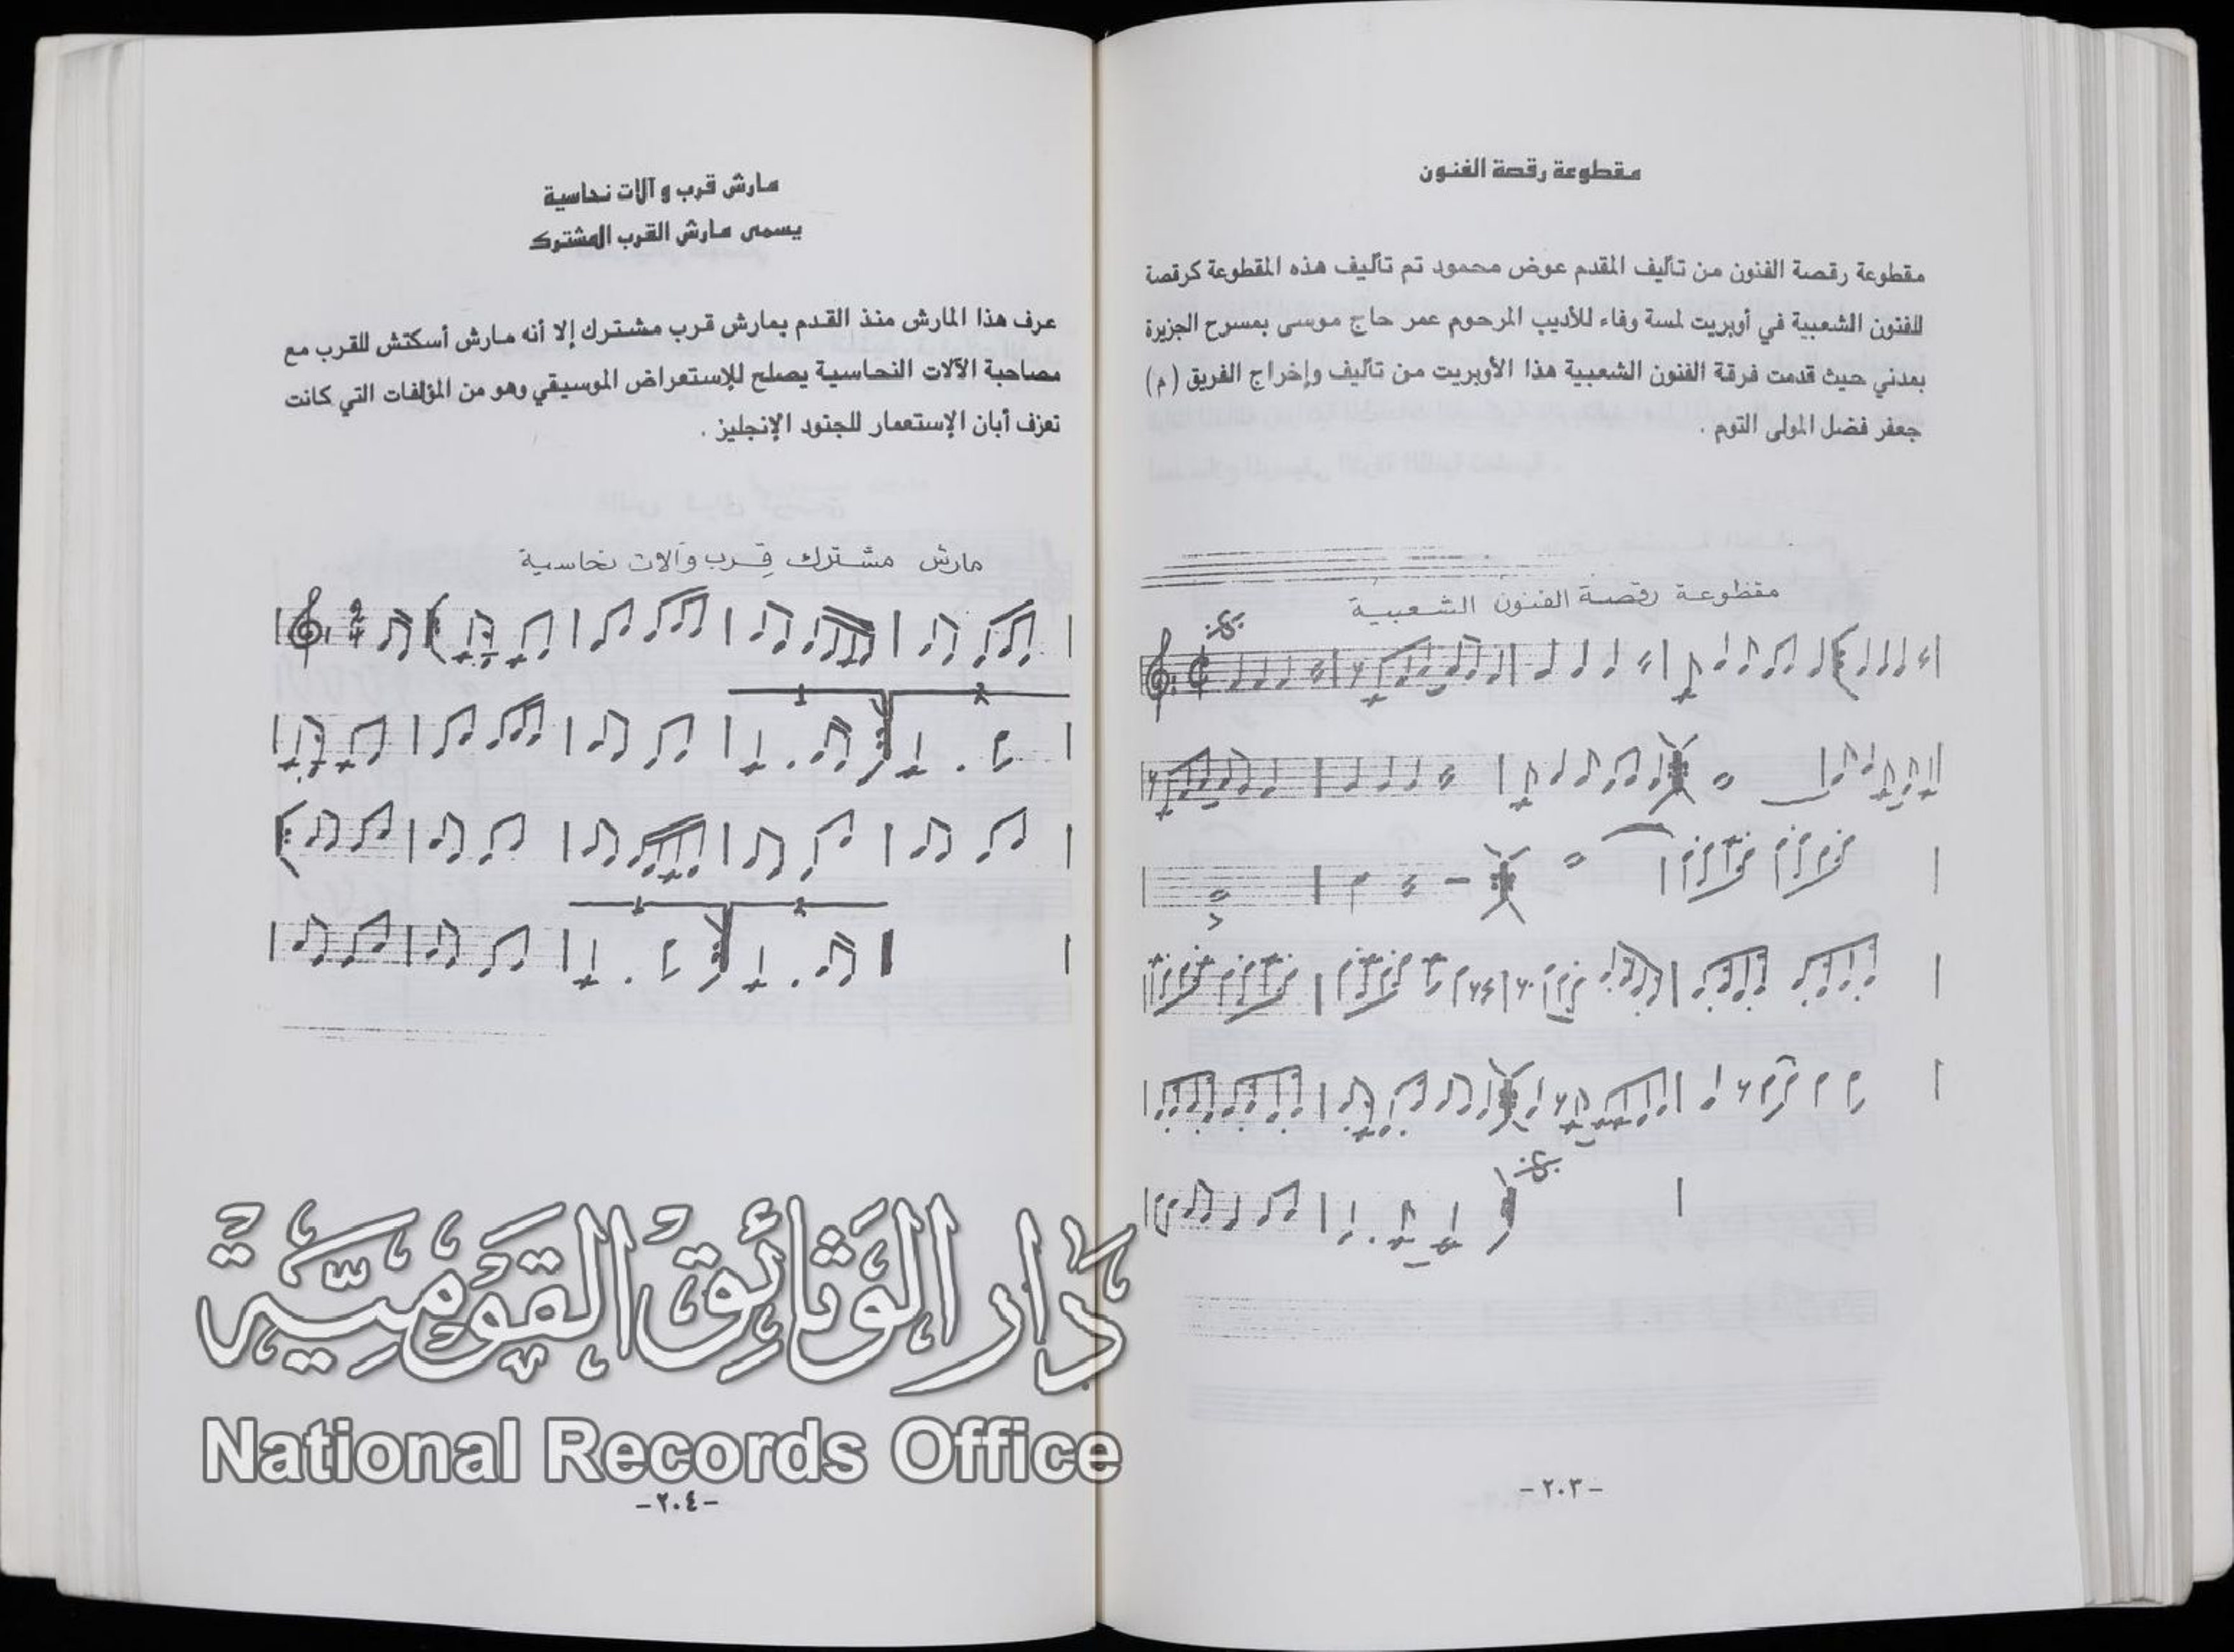 مقطوعة رقصة الفنون
مقطوعة رقصة الفنون من تأليف المقدم عوض محمود تم تأليف هذه المقطوعة كرقصة
للفنون الشعبية في أوبريت لمسة وفاء للأديب المرحوم عمر حاج موسى بمسرح الجزيرة
بمدني حيث قدمت فرقة الفنون الشعبية هذا الأوبريت من تأليف وإخراج الفريق (م)
جعفر فضل المولى التوم .
مقطوعة رقصة الفنون الشعبية
- ٢٠٣ -
مارش قرب و آلات نحاسية
يسمى مارش القرب المشترك
عرف هذا المارش منذ القدم بمارش قرب مشترك إلا أنه مارش أسكتش للقرب مع
مصاحبة الآلات النحاسية يصلح للإستعراض الموسيقي وهو من المؤلفات التي كانت
تعزف أبان الإستعمار للجنود الإنجليز .
مارش مشترك قِرب وآلات نحاسية
2
4
1 2
1 2
دَار الوَثائِق القَوْمِيَّة
National Records Office
- ٢٠٤ -